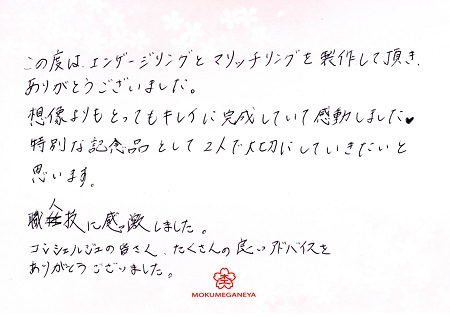 この度は、エンゲージリングとマリッヂリングを製作して頂き、
ありがとうございました。
想像よりもとってもキレイに完成していて感動しました♥
特別な記念品として2人で大切にしていきたいと
思います。
職人技に感激しました。
コンシェルジュの皆さん、たくさんの良いアドバイスを
ありがとうございました。
MOKUMEGANEYA